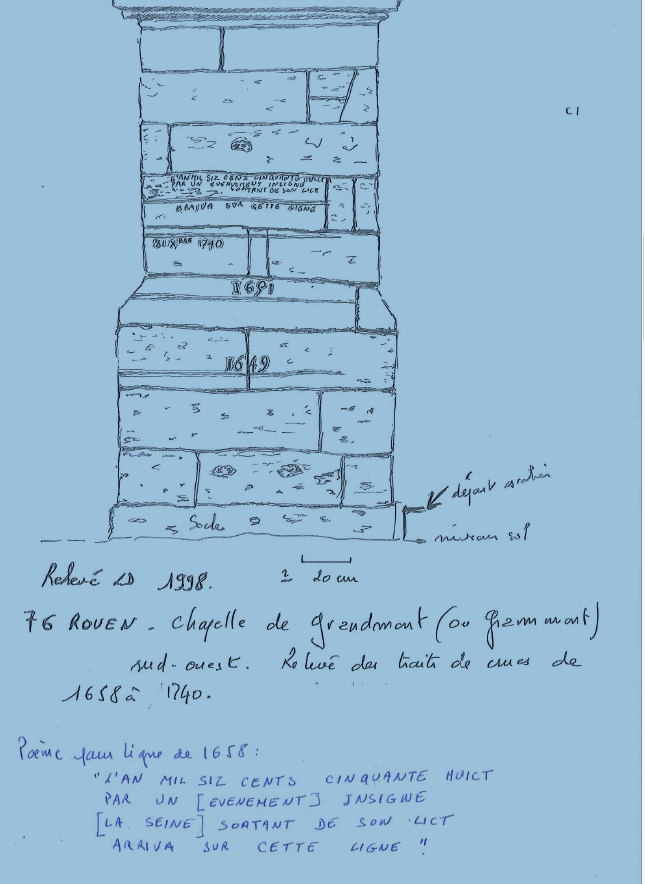 C1
L'AN MIL SIZ CENZ CINQUANTE HUICT
PAR UN EVENEMENT INSIGNE
SORTANT DE SON LICT
ARRIVA SUR CETTE LIGNE
1740
1691
1649
Socle
départ
niveau sol
20 cm
Relevé LD 1998.
76 ROUEN - Chapelle de Grandmont (ou Grammont)
sud-ouest. Relevé des traits de crues de
1658 à 1740.
Poème sur ligne de 1658 :
"L'AN MIL SIZ CENTS CINQUANTE HUICT
PAR UN [EVENEMENT] INSIGNE
[LA SEINE] SORTANT DE SON LICT
ARRIVA SUR CETTE LIGNE "